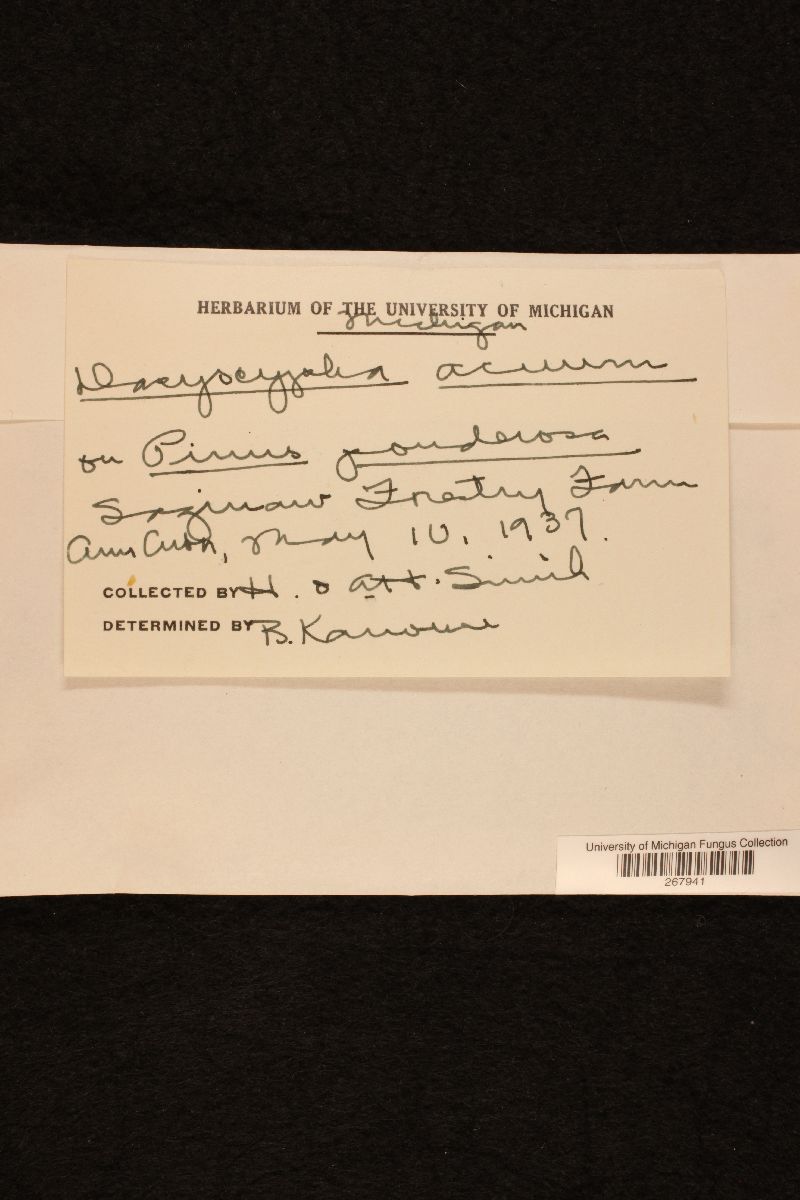 HERBARIUM OF THE UNIVERSITY OF MICHIGAN
Michigan
Dasyscypha acuum
on Pinus ponderosa
Saginaw Forestry Farm
Ann Arbor, May 10, 1937.
COLLECTED BY H. & A.H. Smith
DETERMINED BY B. Kanouse
University of Michigan Fungus Collection
267941